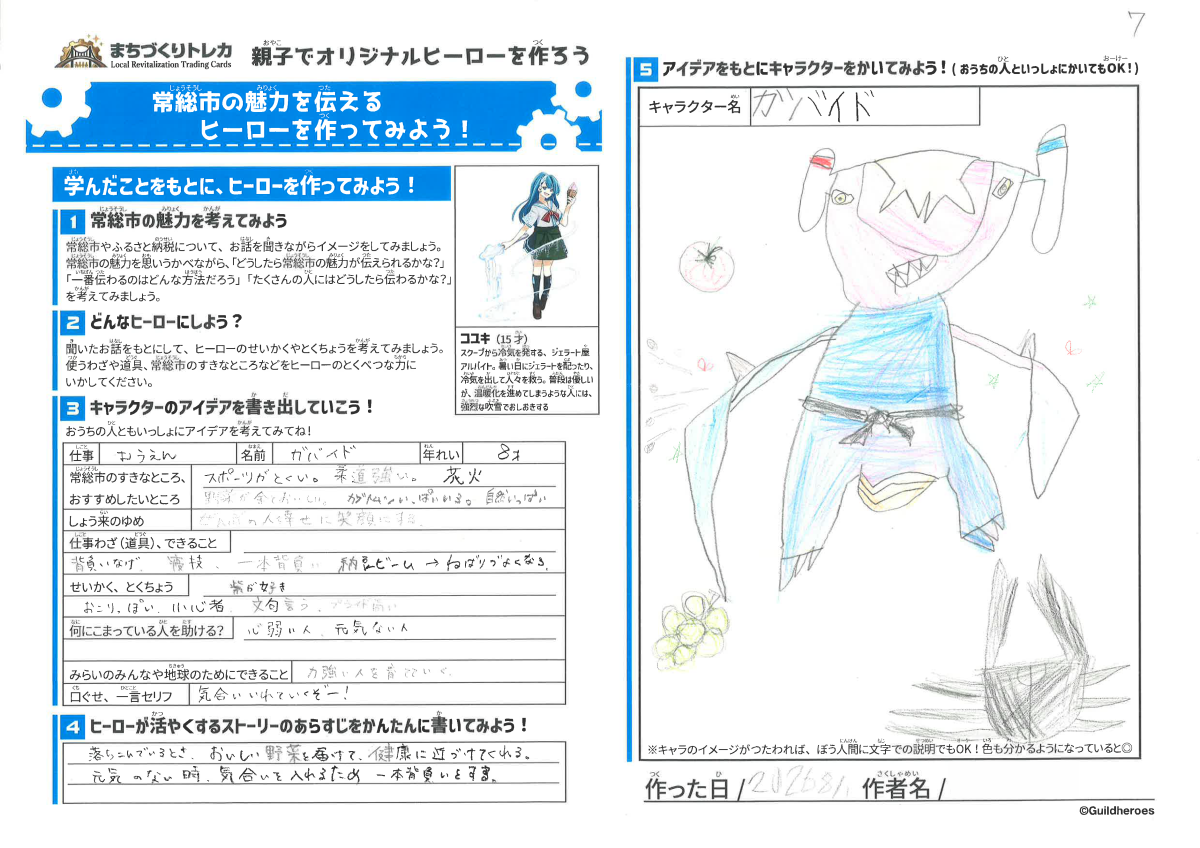 7
まちづくりトレカ
Local Revitalization Trading Cards
親子でオリジナルヒーローを作ろう
常総市の魅力を伝える
ヒーローを作ってみよう！
学んだことをもとに、ヒーローを作ってみよう！
1 常総市の魅力を考えてみよう
常総市やふるさと納税について、お話を聞きながらイメージをしてみましょう。
常総市の魅力を思いうかべながら、「どうしたら常総市の魅力が伝えられるかな？」
「一番伝わるのはどんな方法だろう」「たくさんの人にはどうしたら伝わるかな？」
を考えてみましょう。
2 どんなヒーローにしよう？
聞いたお話をもとにして、ヒーローのせいかくやとくちょうを考えてみましょう。
使うわざや道具、常総市のすきなところなどをヒーローのとくべつな力に
いかしてください。
ココユキ（15才）
スクープから冷気を発する、ジェラート屋
アルバイト。暑い日にジェラートを配ったり、
冷気を出して人々を救う。普段は優しい
が、温暖化を進めてしまうような人には、
強烈な吹雪でおしおきする
3 キャラクターのアイデアを書き出していこう！
おうちの人ともいっしょにアイデアを考えてみてね！
仕事 おうえん 名前 ガバイド 年れい 8才
常総市のすきなところ、 スポーツがとくい。柔道強い。 花火
おすすめしたいところ 野菜が全ておいしい。 自然いっぱい
しょう来のゆめ ぜんぶの人幸せに笑顔にする。
仕事わざ（道具）、できること
背負いなげ、寝技、一本背負い 納豆ビーム → ねばりづよくなる。
せいかく、とくちょう 紫が好き
おこりっぽい、小心者、文句言う、プライド高い
何にこまっている人を助ける？ 心弱い人、元気ない人
みらいのみんなや地球のためにできること 力強い人を育てていく。
口ぐせ、一言セリフ 気合いいれていくぞー！
4 ヒーローが活やくするストーリーのあらすじをかんたんに書いてみよう！
落ちこんでいるとき、おいしい野菜を届けて、健康に近づけてくれる。
元気のない時、気合いを入れるため 一本背負いをする。
5 アイデアをもとにキャラクターをかいてみよう！（おうちの人といっしょにかいてもOK！）
キャラクター名 ガバイド
※キャラのイメージがつたわれば、ぼう人間に文字での説明でもOK！色も分かるようになっていると◎
作った日 / 2026 8/1 作者名 /
©Guildheroes